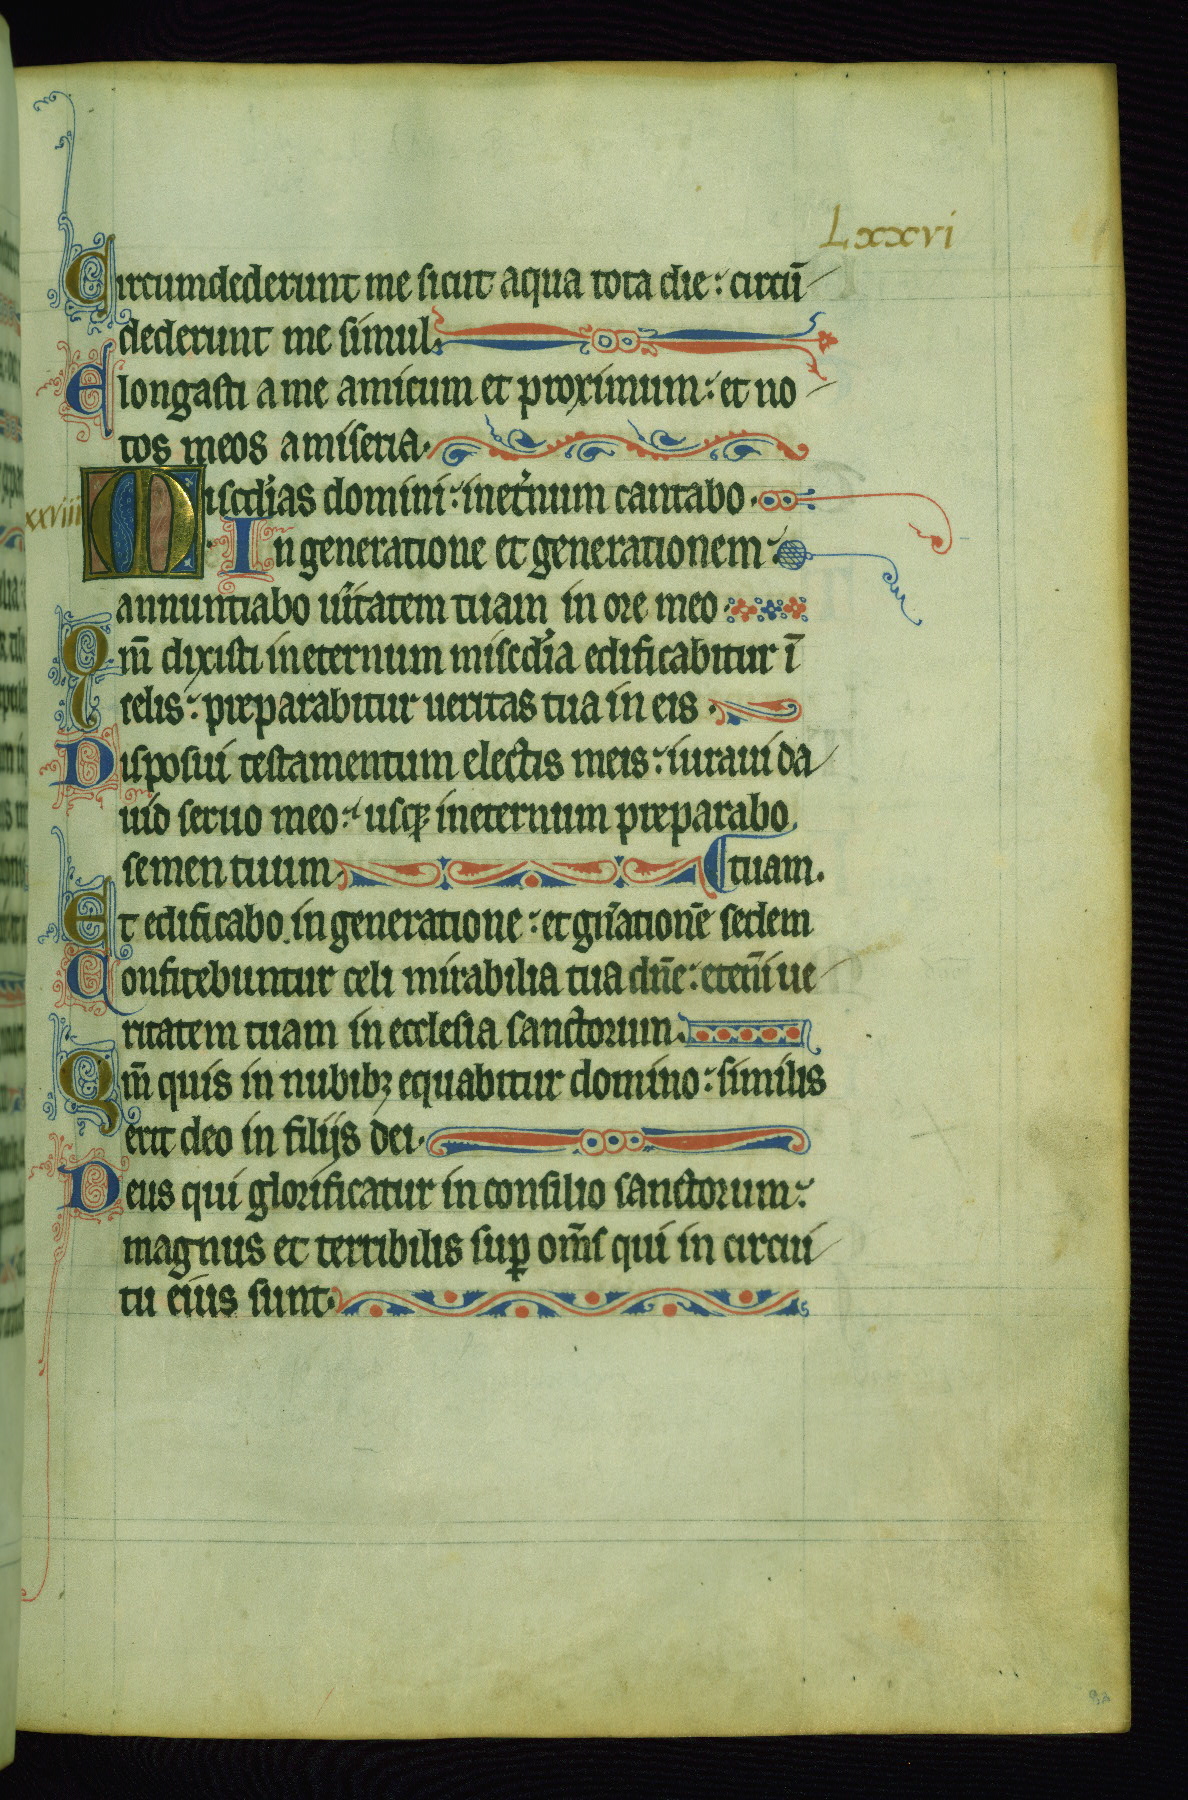 Lxxvi
Circumdederunt me sicut aqua tota die : circū
dederunt me simul.
Elongasti a me amicum et proximum : et no
tos meos a miseria.
xxviii
Miscd̓ias domini : inet̓num cantabo.
In generatione et generationem :
annuntiabo uit̓atem tuam in ore meo
Qm̄ dixisti in eternum miscd̓ia edificabitur ī
celis : preparabitur ueritas tua in eis .
Disposui testamentum electis meis : iuraui da
uid seruo meo : usqꝫ in eternum preparabo
semen tuum. tuam.
Et edificabo in generatione : et gn̄ationē sedem
Confitebuntur celi mirabilia tua dn̄e : etenī ue
ritatem tuam in ecclesia sanctorum.
Qm̄ quis in nubibꝫ equabitur domino : similis
erit deo in filijs dei.
Deus qui glorificatur in consilio sanctorum :
magnus et terribilis suꝑ om̄s qui in circui
tu eius sunt.